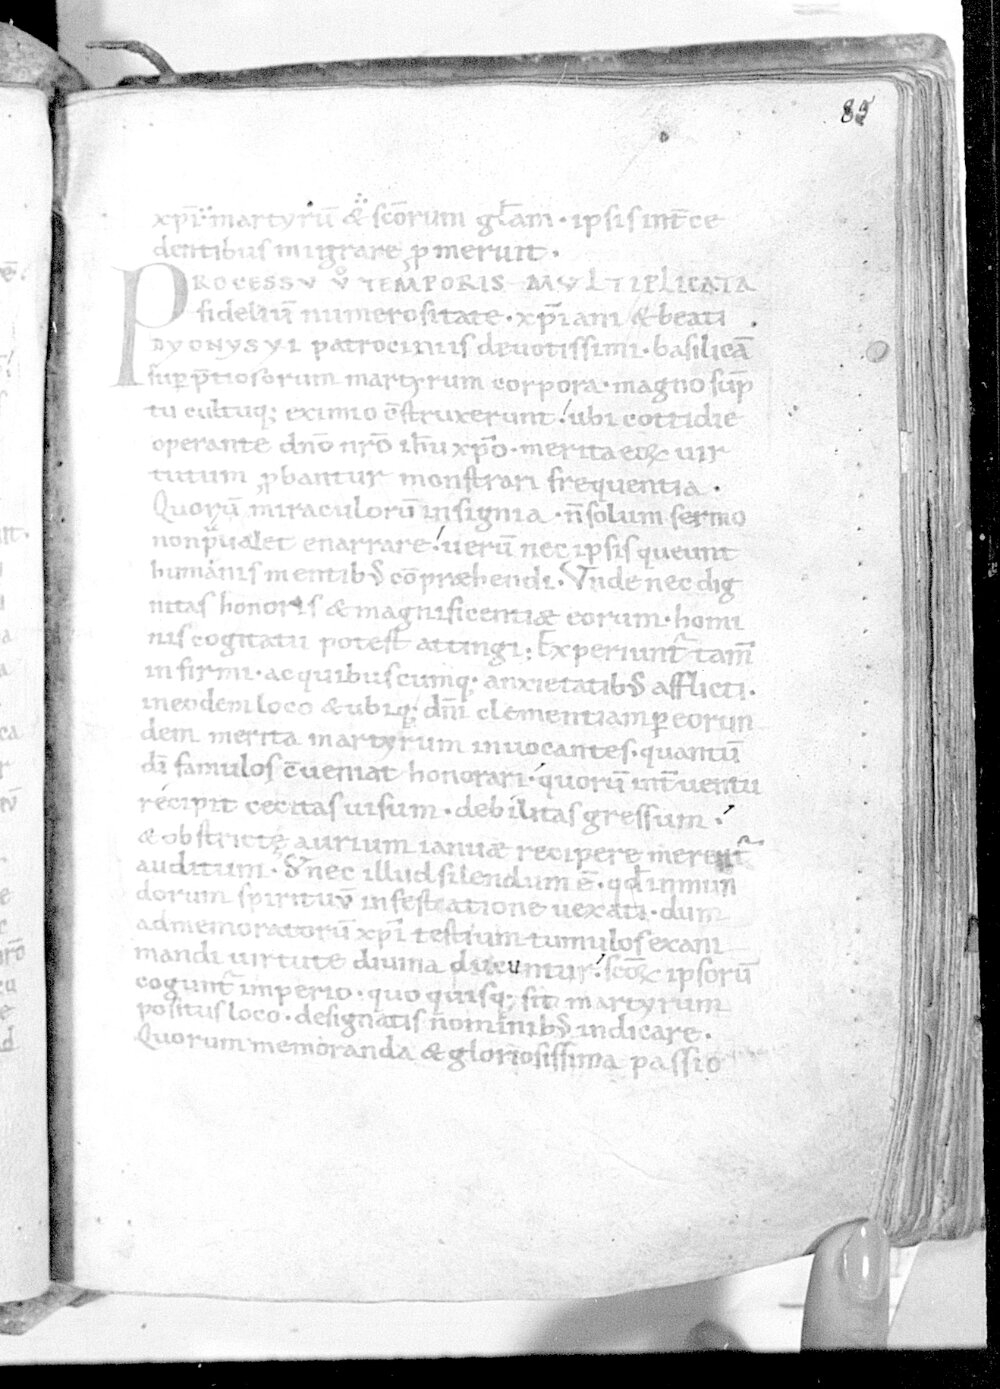 85
xp̄i martyrū & sc̄orum gl̄am · ipsis int̄ce
dentibus migrare ꝓmerunt.
PROCESSV v̊ TEMPORIS MVLTIPLICATA
fidelium numerositate · xp̄iani & beati
DYONYSYI patrocinus deuotissimi · basilicā
suꝑ p̄tiosorum martyrum corpora · magno sūp
tu cultuq; eximio c̄struxerunt! ubi cottidie
operante dn̄o nr̄o ih̄u xp̄o · merita eoꝝ uir
tutum ꝓbantur monstrari frequentia.
Quorū miraculorū insignia · n̄ solum sermo
non p̄ualet enarrare! uerū nec ipsis queunt
humanis mentib; cōpræhendi. Vnde nec dig
nitas honoris & magnificentiæ eorum · homi
nis cogitatu potest attingi; Experiunt̄ tam̄
infirmi · ac quibuscumq; anxietatib; afflicti.
in eodem loco & ubiq; dn̄i clementiam ꝑ eorun
dem merita martyrum inuocantes · quantū
dī famulos c̄ueniat honorari · quorū int̄uentu
recipit cecitas uisum · debilitas gressum.
& obstrictę aurium ianuæ recipere merent̄
auditum. S; nec illud silendum ē · qd̄ inmun
dorum spirituū infestatione uexati · dum
ad memoratorū xp̄i testium tumulos exami
nandi uirtute diuina ducuntur! sc̄oꝝ ipsorū
cogunt̄ imperio · quo quisq; sit martyrum
positus loco · designatis nominib; indicare.
Quorum memoranda & gloriosissima passio